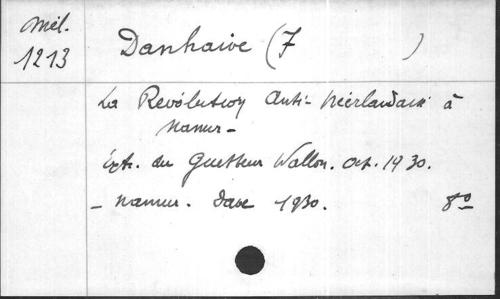 Mél.
1213
Danhaive (F )
La Révolution Anti-Néerlandaise à
Namur -
Extr. du Guetteur Wallon. Oct. 1930.
- Namur. Dave 1930. 8º